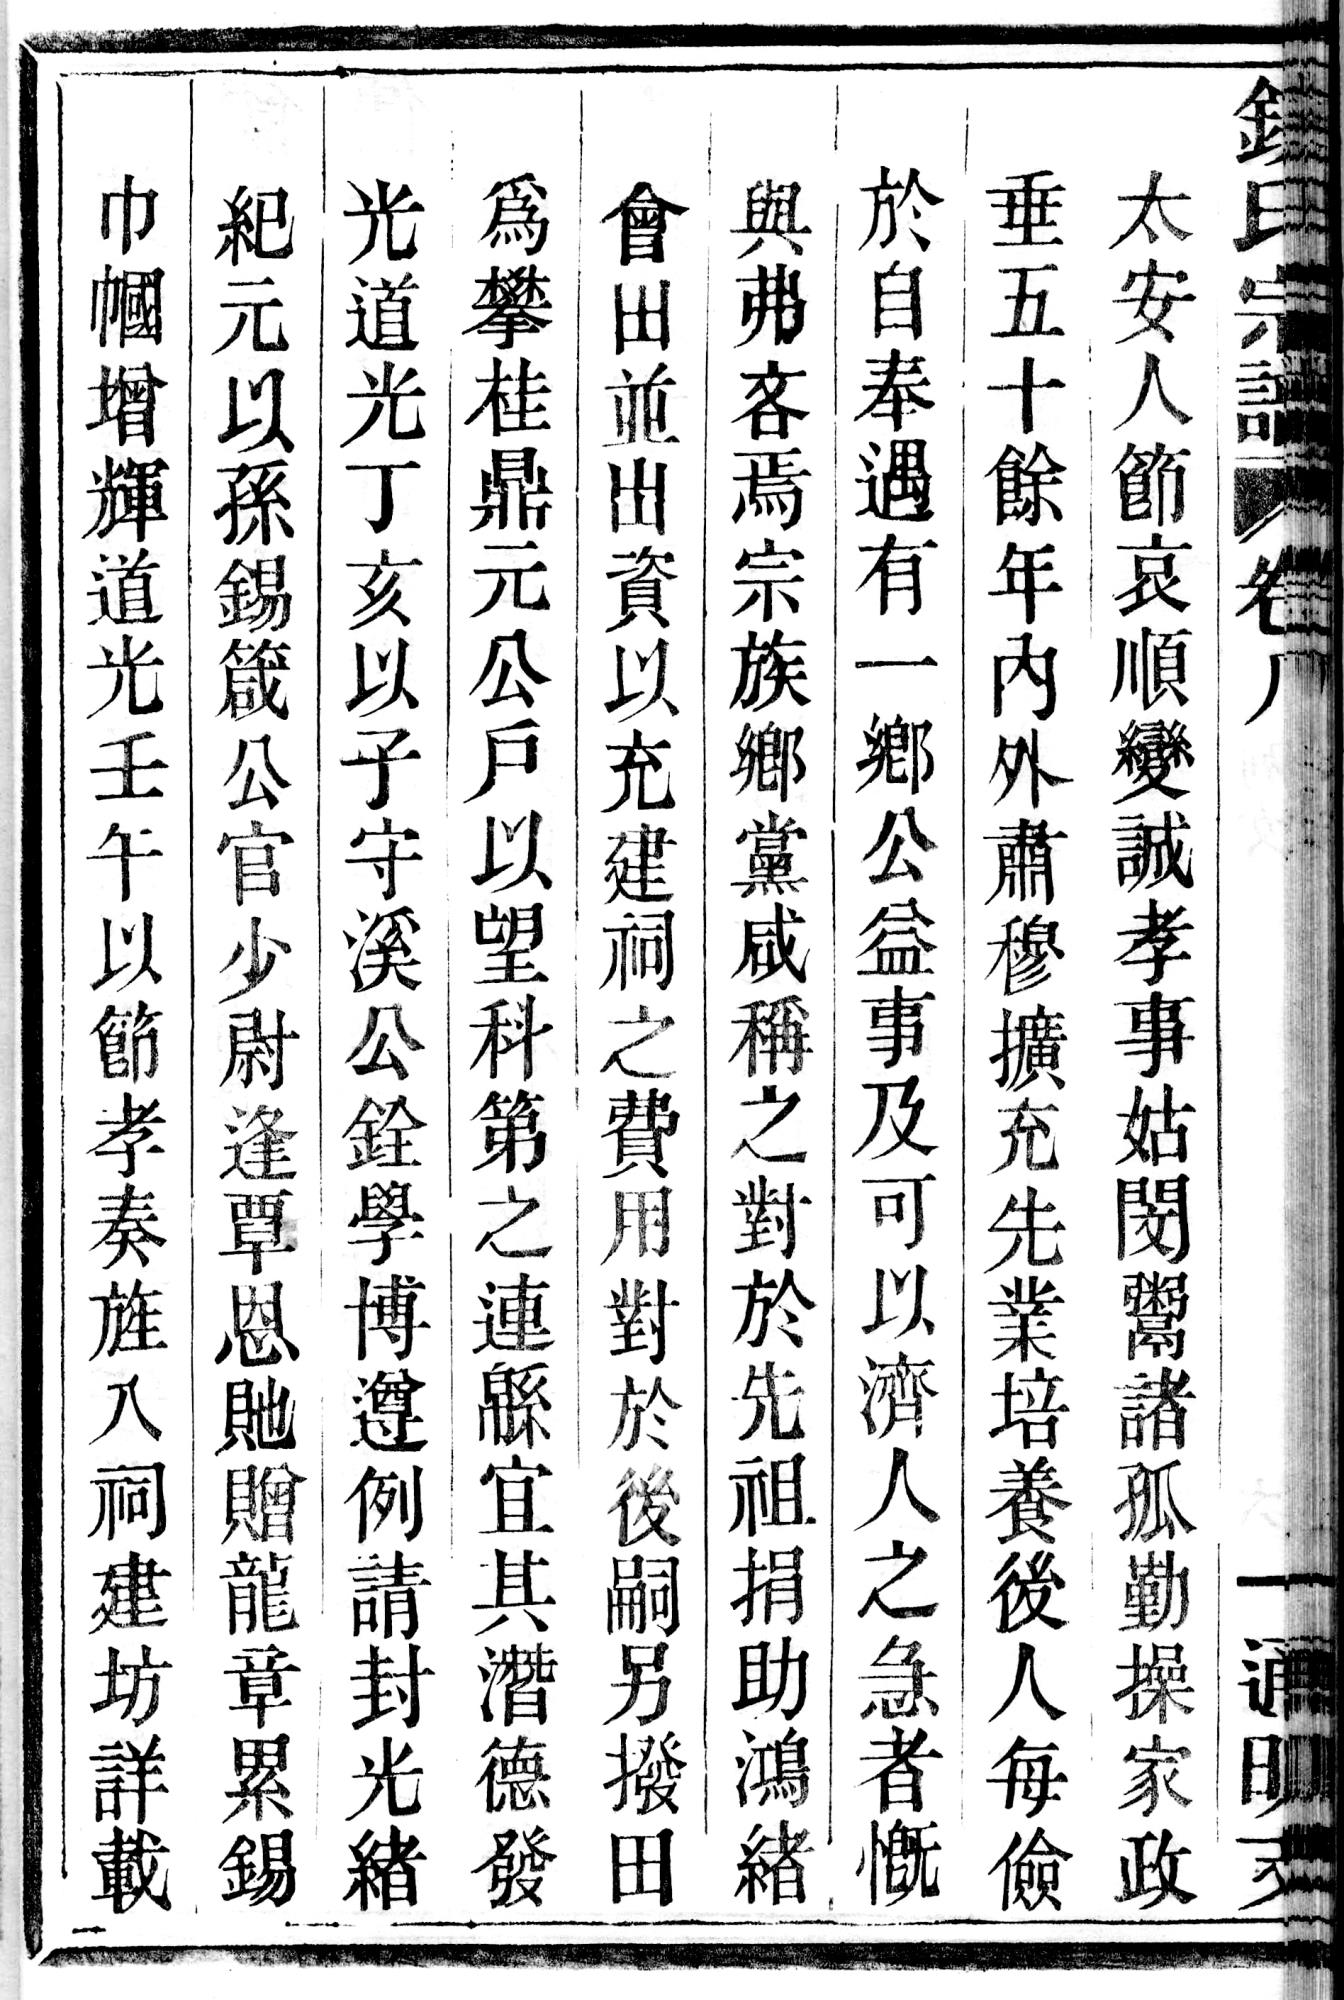 氏宗譜 卷八 一 通明
太安人節哀順變誠孝事姑閔鬻諸孤勤操家政
垂五十餘年內外肅穆擴充先業培養後人每儉
於自奉遇有一鄉公益事及可以濟人之急者慨
與弗吝焉宗族鄉黨咸稱之對於先祖捐助鴻緒
會田並出資以充建祠之費用對於後嗣另撥田
爲攀桂鼎元公戶以望科第之連緜宜其潛德發
光道光丁亥以子守溪公銓學博遵例請封光緒
紀元以孫錫箴公官少尉逢覃恩貤贈龍章累錫
巾幗增輝道光壬午以節孝奏旌入祠建坊詳載